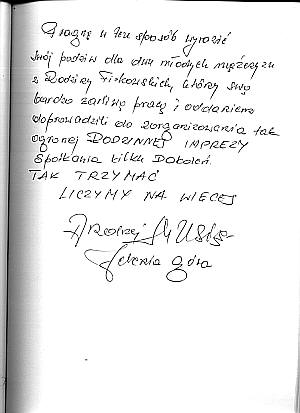 Pragnę w ten sposób wyrazić
swój podziw dla dwu młodych mężczyzn
z Rodziny Fiżowskich, którzy swą
bardzo żarliwą pracą i oddaniem
doprowadzili do zorganizowania tak
ogromnej RODZINNEJ IMPREZY
Spotkania kilku Pokoleń.
TAK TRZYMAĆ
LICZYMY NA WIĘCEJ
Andrzej
Jelenia Góra